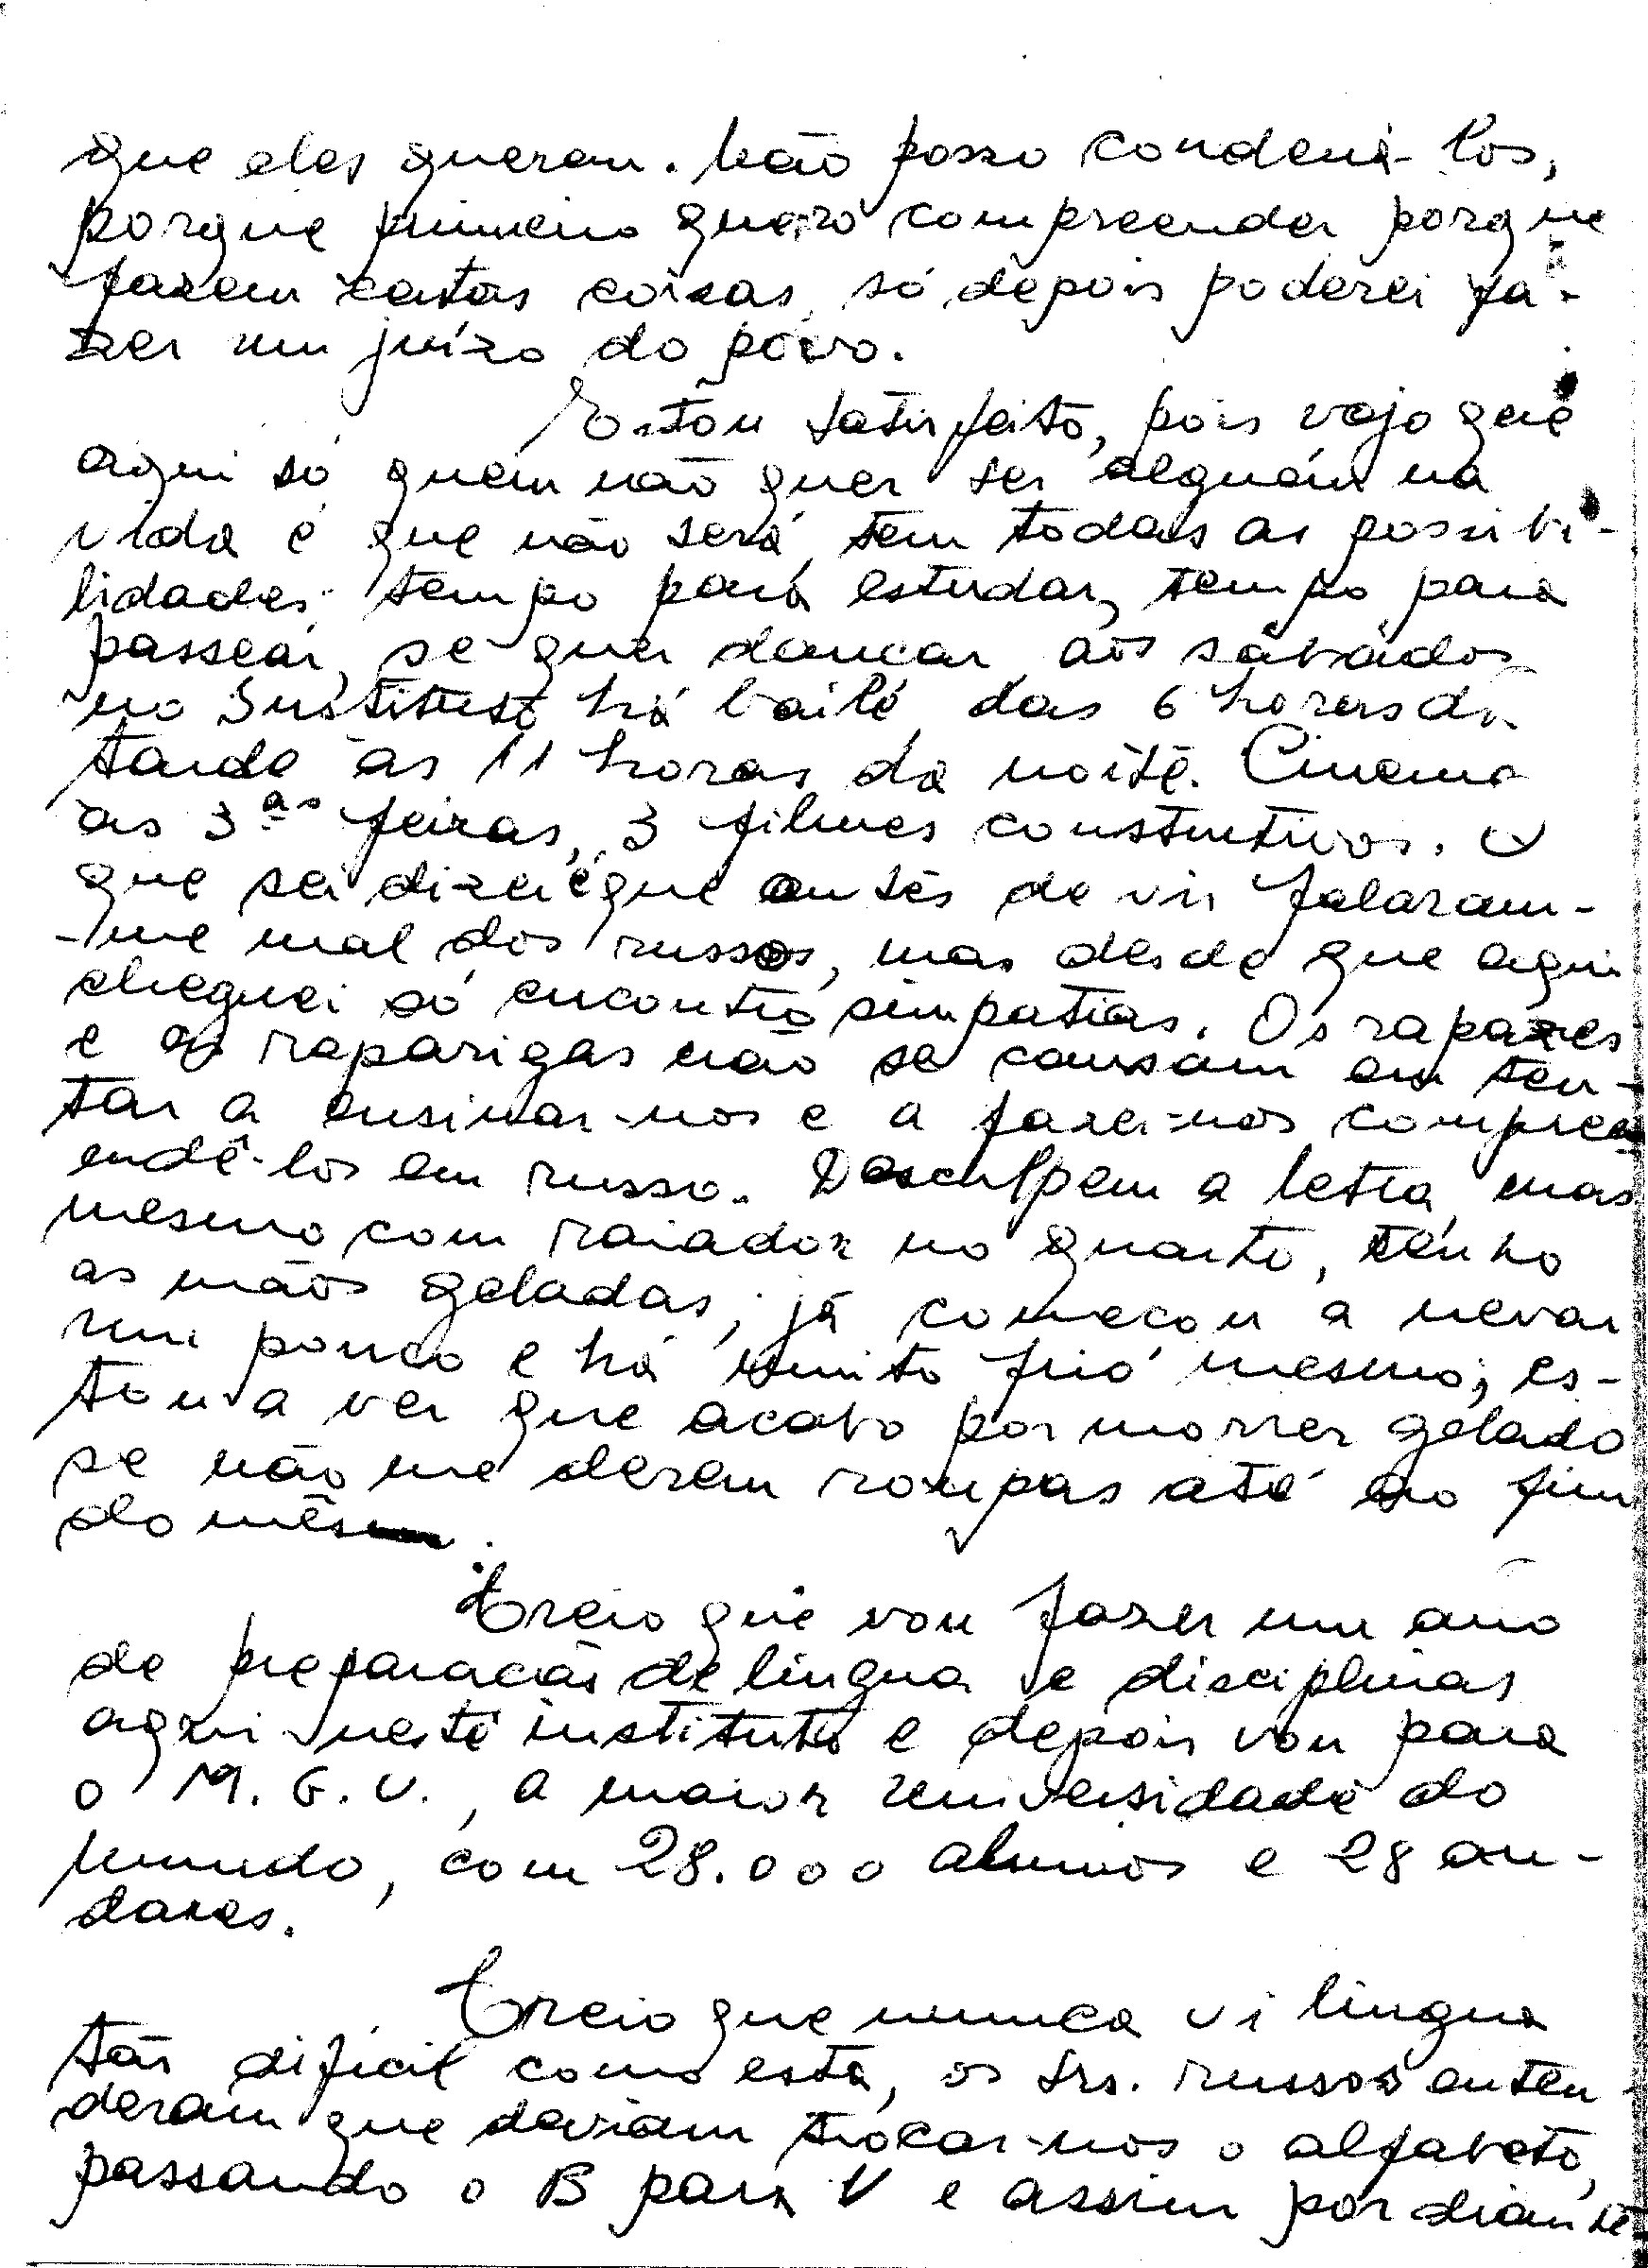 que eles queram. Não posso condená-los,
porque primeiro quero compreender porque
fazem certas coisas, só depois poderei fa-
zer um juízo do povo.
Estou satisfeito, pois vejo que
aqui só quem não quer ser alguém na
vida é que não será, tem todas as possibi-
lidades: tempo para estudar, tempo para
passear, se quer dançar, aos sábados
no Instituto há baile das 6 horas da
tarde às 11 horas da noite. Cinema
às 3ªs feiras, 3 filmes construtivos. O
que sei dizer é que antes de vir falaram-
-me mal dos russos, mas desde que aqui
cheguei só encontro simpatias. Os rapazes
e as raparigas não se cansam em ten-
tar a ensinar-nos e a fazer-nos compre
endê-los em russo. Desculpem a letra, mas
mesmo com raiador no quarto, tenho
as mãos geladas, já começou a nevar
um pouco e há muito frio mesmo; es-
tou a ver que acabo por morrer gelado
se não me derem roupas até ao fim
do mês.
Creio que vou fazer um ano
de preparação de língua e disciplinas
aqui neste instituto e depois vou para
o M.G.U., a maior universidade do
mundo, com 28.000 alunos e 28 an-
dares.
Creio que nunca vi língua
tão difícil como esta, os srs. russos enten
deram que deviam trocar-nos o alfabeto,
passando o B para V e assim por diante